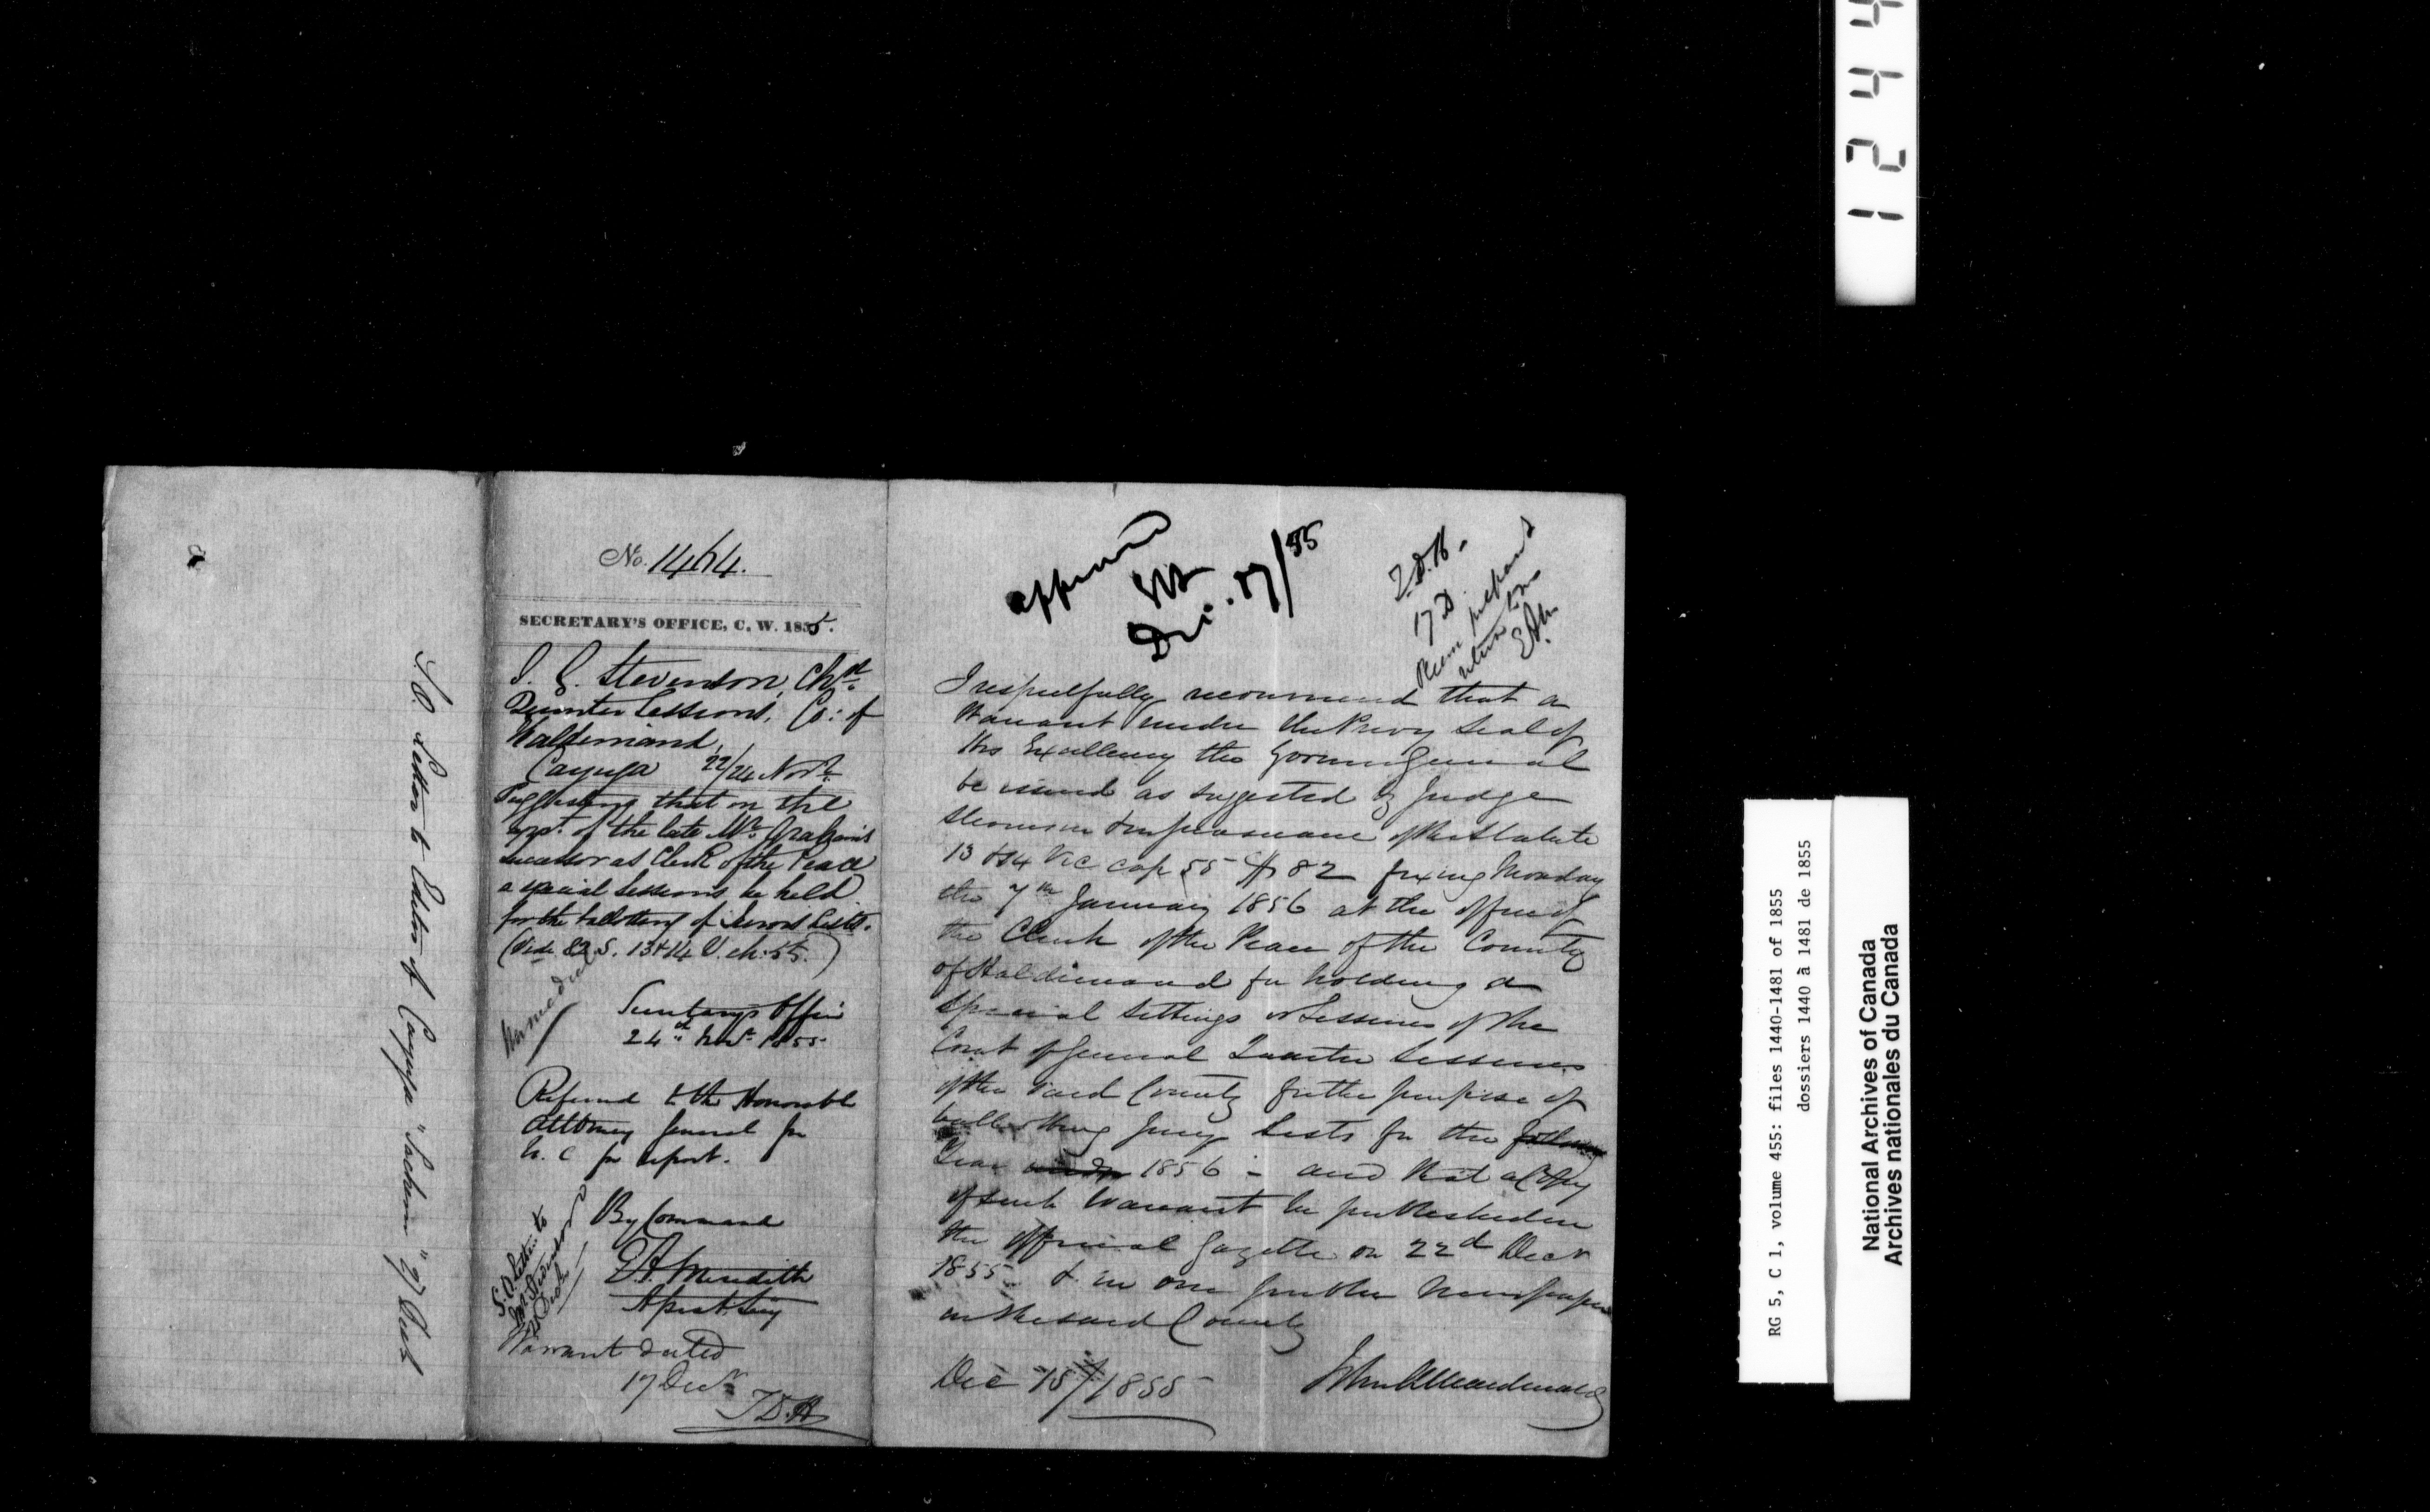 S.O. Letter to Editor of Cayuga "Sachem" 27 Decr
No. 1464.
SECRETARY'S OFFICE, C. W. 1855.
J. G. Stevenson, Chn
Quarter Sessions, Co: of
Haldimand,
Cayuga 22/24 Novr.
Suggesting that on the
appt. of the late Mr. Graham's
successor as Clerk of the Peace
a special Sessions be held
for the balloting of Jurors Lists.
(Vide 82 S. 13 & 14 V. ch: 55.)
Secretary's Office
24th Novr. 1855
Referred to the Honorable
Attorney General for
U. C for report.
By Command
E A. Meredith
Asst. Secy
S. O. letter to
Mr Stevenson
Decr
Warrant dated
17 Decr
T. D. H
approved
Dec. 17/55
T. D. H.
17 D.
prepare
E A M
I respectfully recommend that a
Warrant under the Privy Seal of
His Excellency the Governor General
be issued as suggested by Judge
Stevenson & in pursuance of the Statute
13 & 14 Vic cap 55 § 82 fixing Monday
the 7th January 1856 at the office of
the Clerk of the Peace of the County
of Haldimand for holding a
Special Sittings or Sessions of the
Court of General Quarter Sessions
of the said County for the purpose of
ballotting Jury Lists for the following
Year 1856 - and that a Copy
of such Warrant be published in
the Official Gazette on 22d Decr
1855 & in one public Newspaper
in the said County
Dec 15/1855 John A Macdonald
1 2 4 4
RG 5, C 1, volume 455: files 1440-1481 of 1855
dossiers 1440 à 1481 de 1855
National Archives of Canada
Archives nationales du Canada